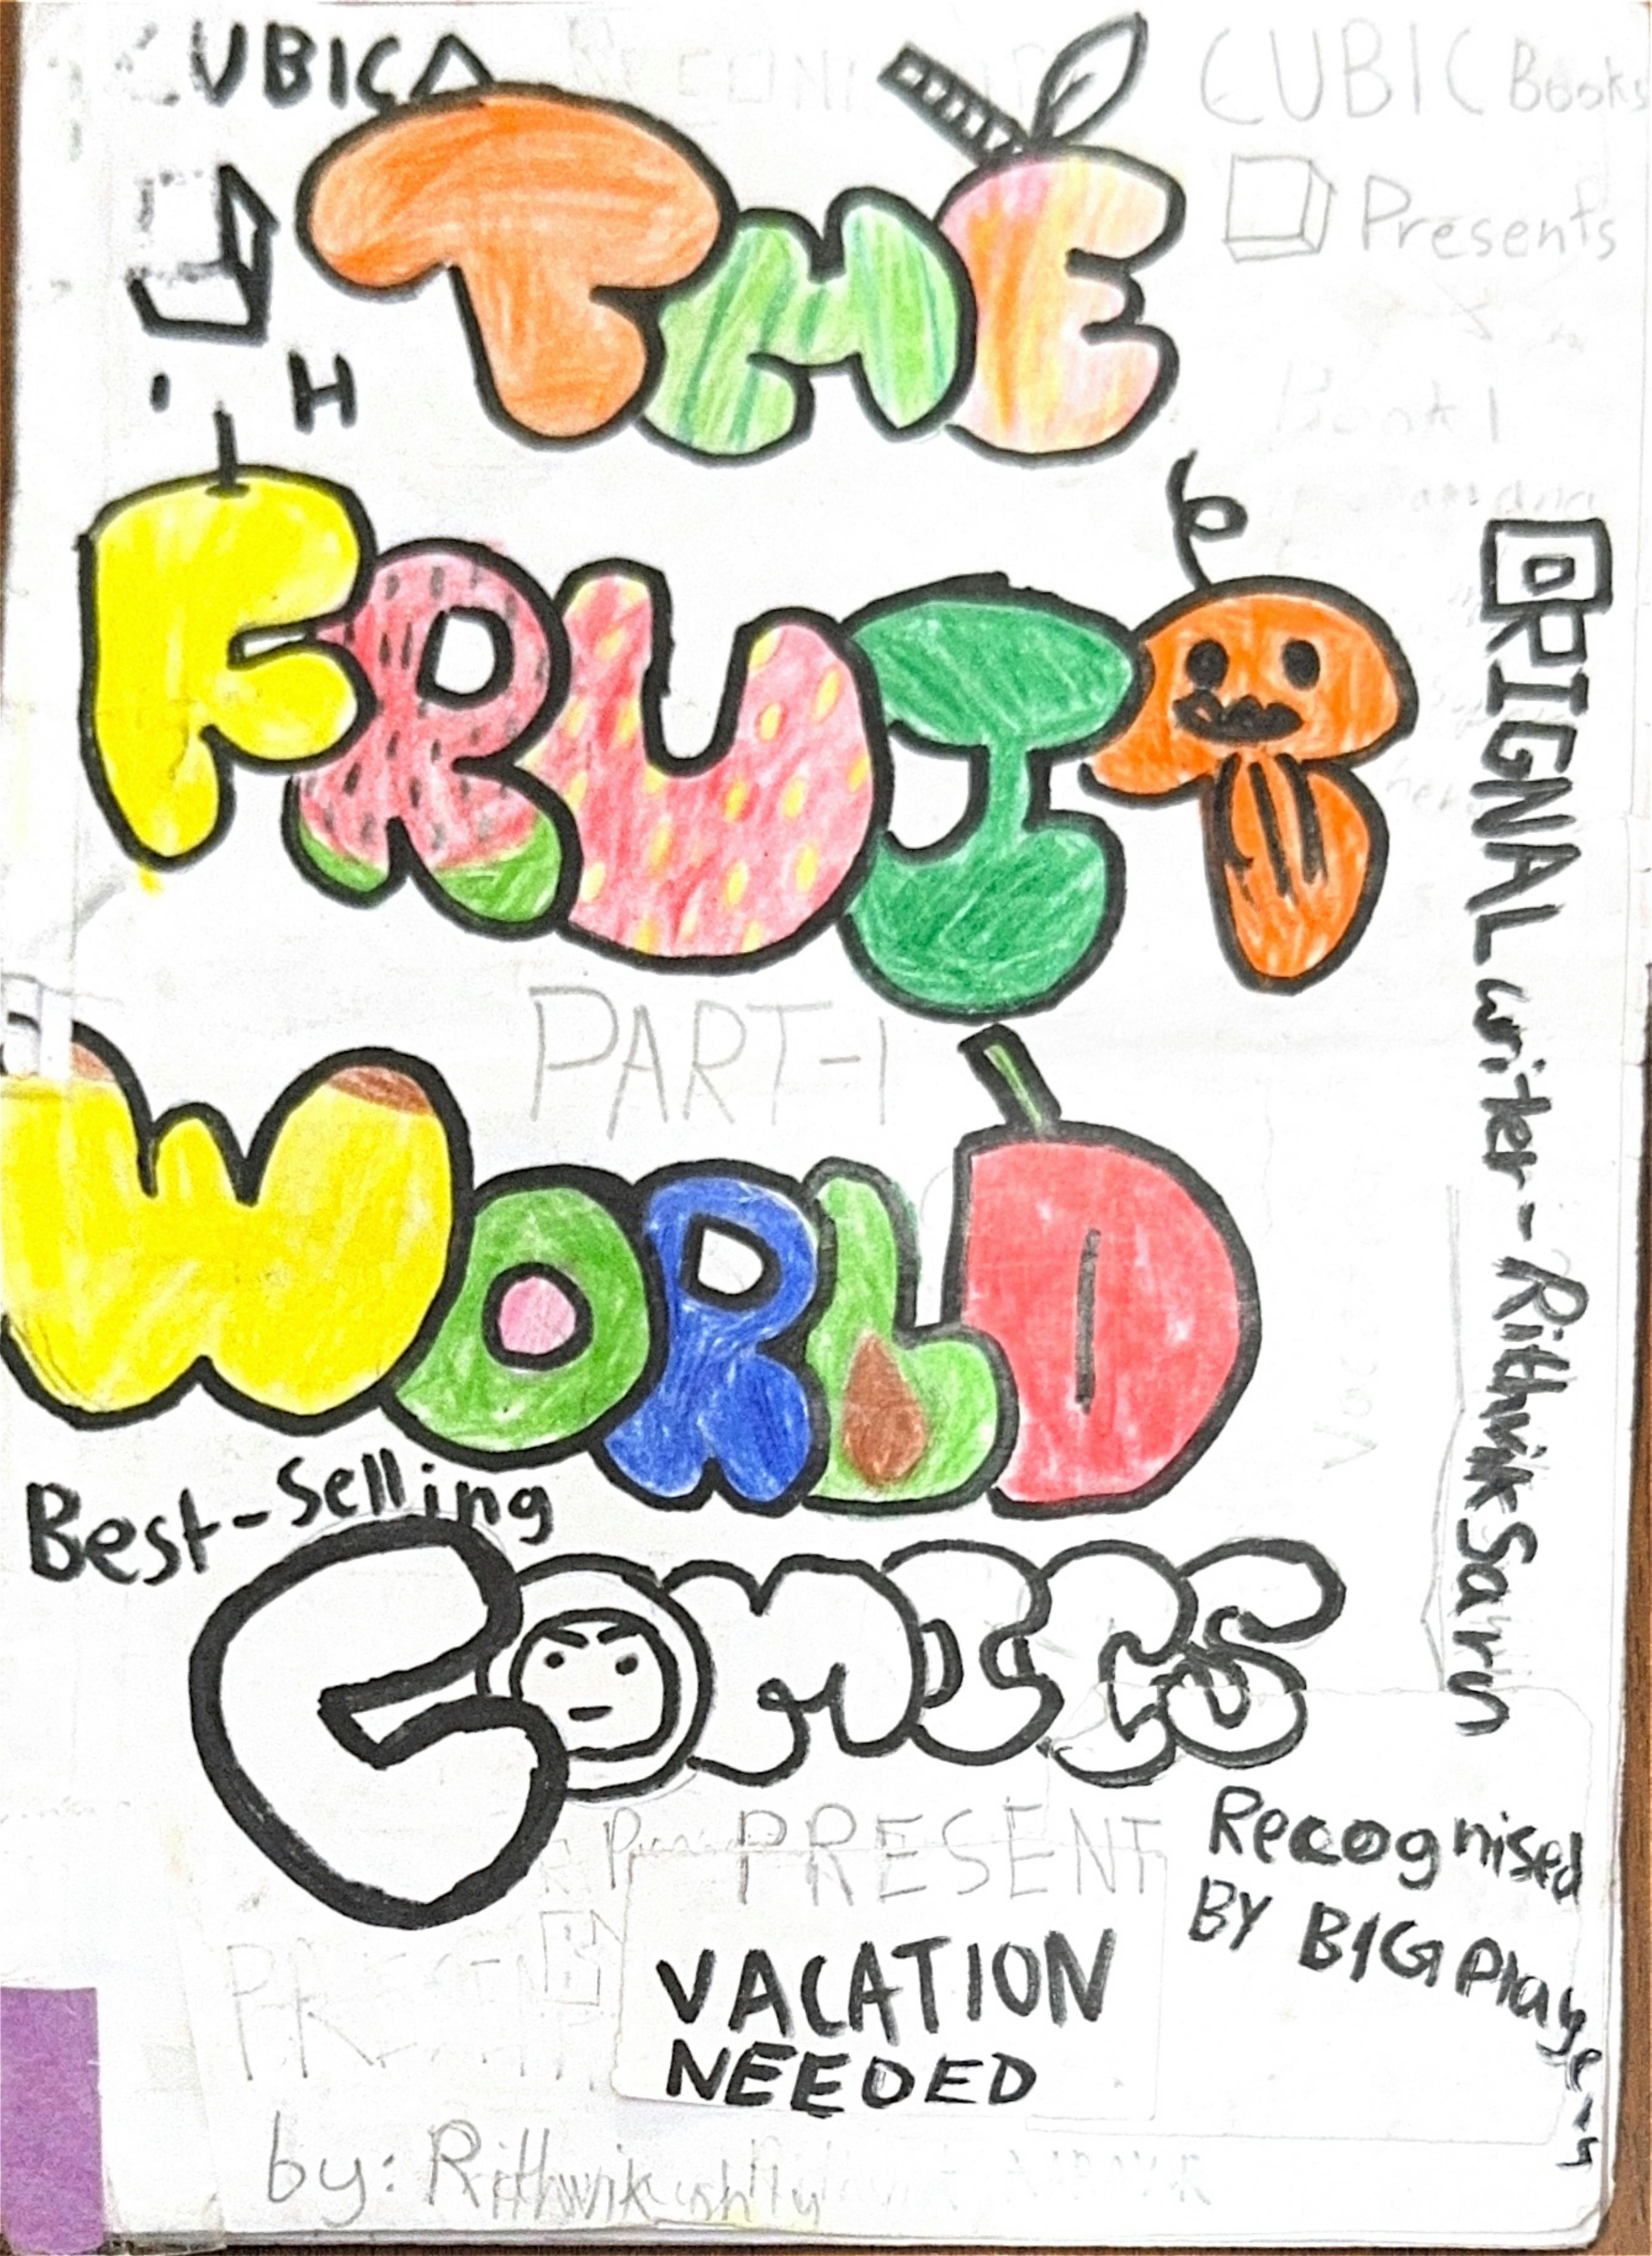 UBICA
CUBIC Books
Presents
H
THE
Book 1
FRUIT
PART-1
WORLD
ORIGNAL writer - Rithwik Sarin
Best-Selling
COMICS
PRESENT
Recognised
BY BIG Players
VACATION
NEEDED
by: Rithwik